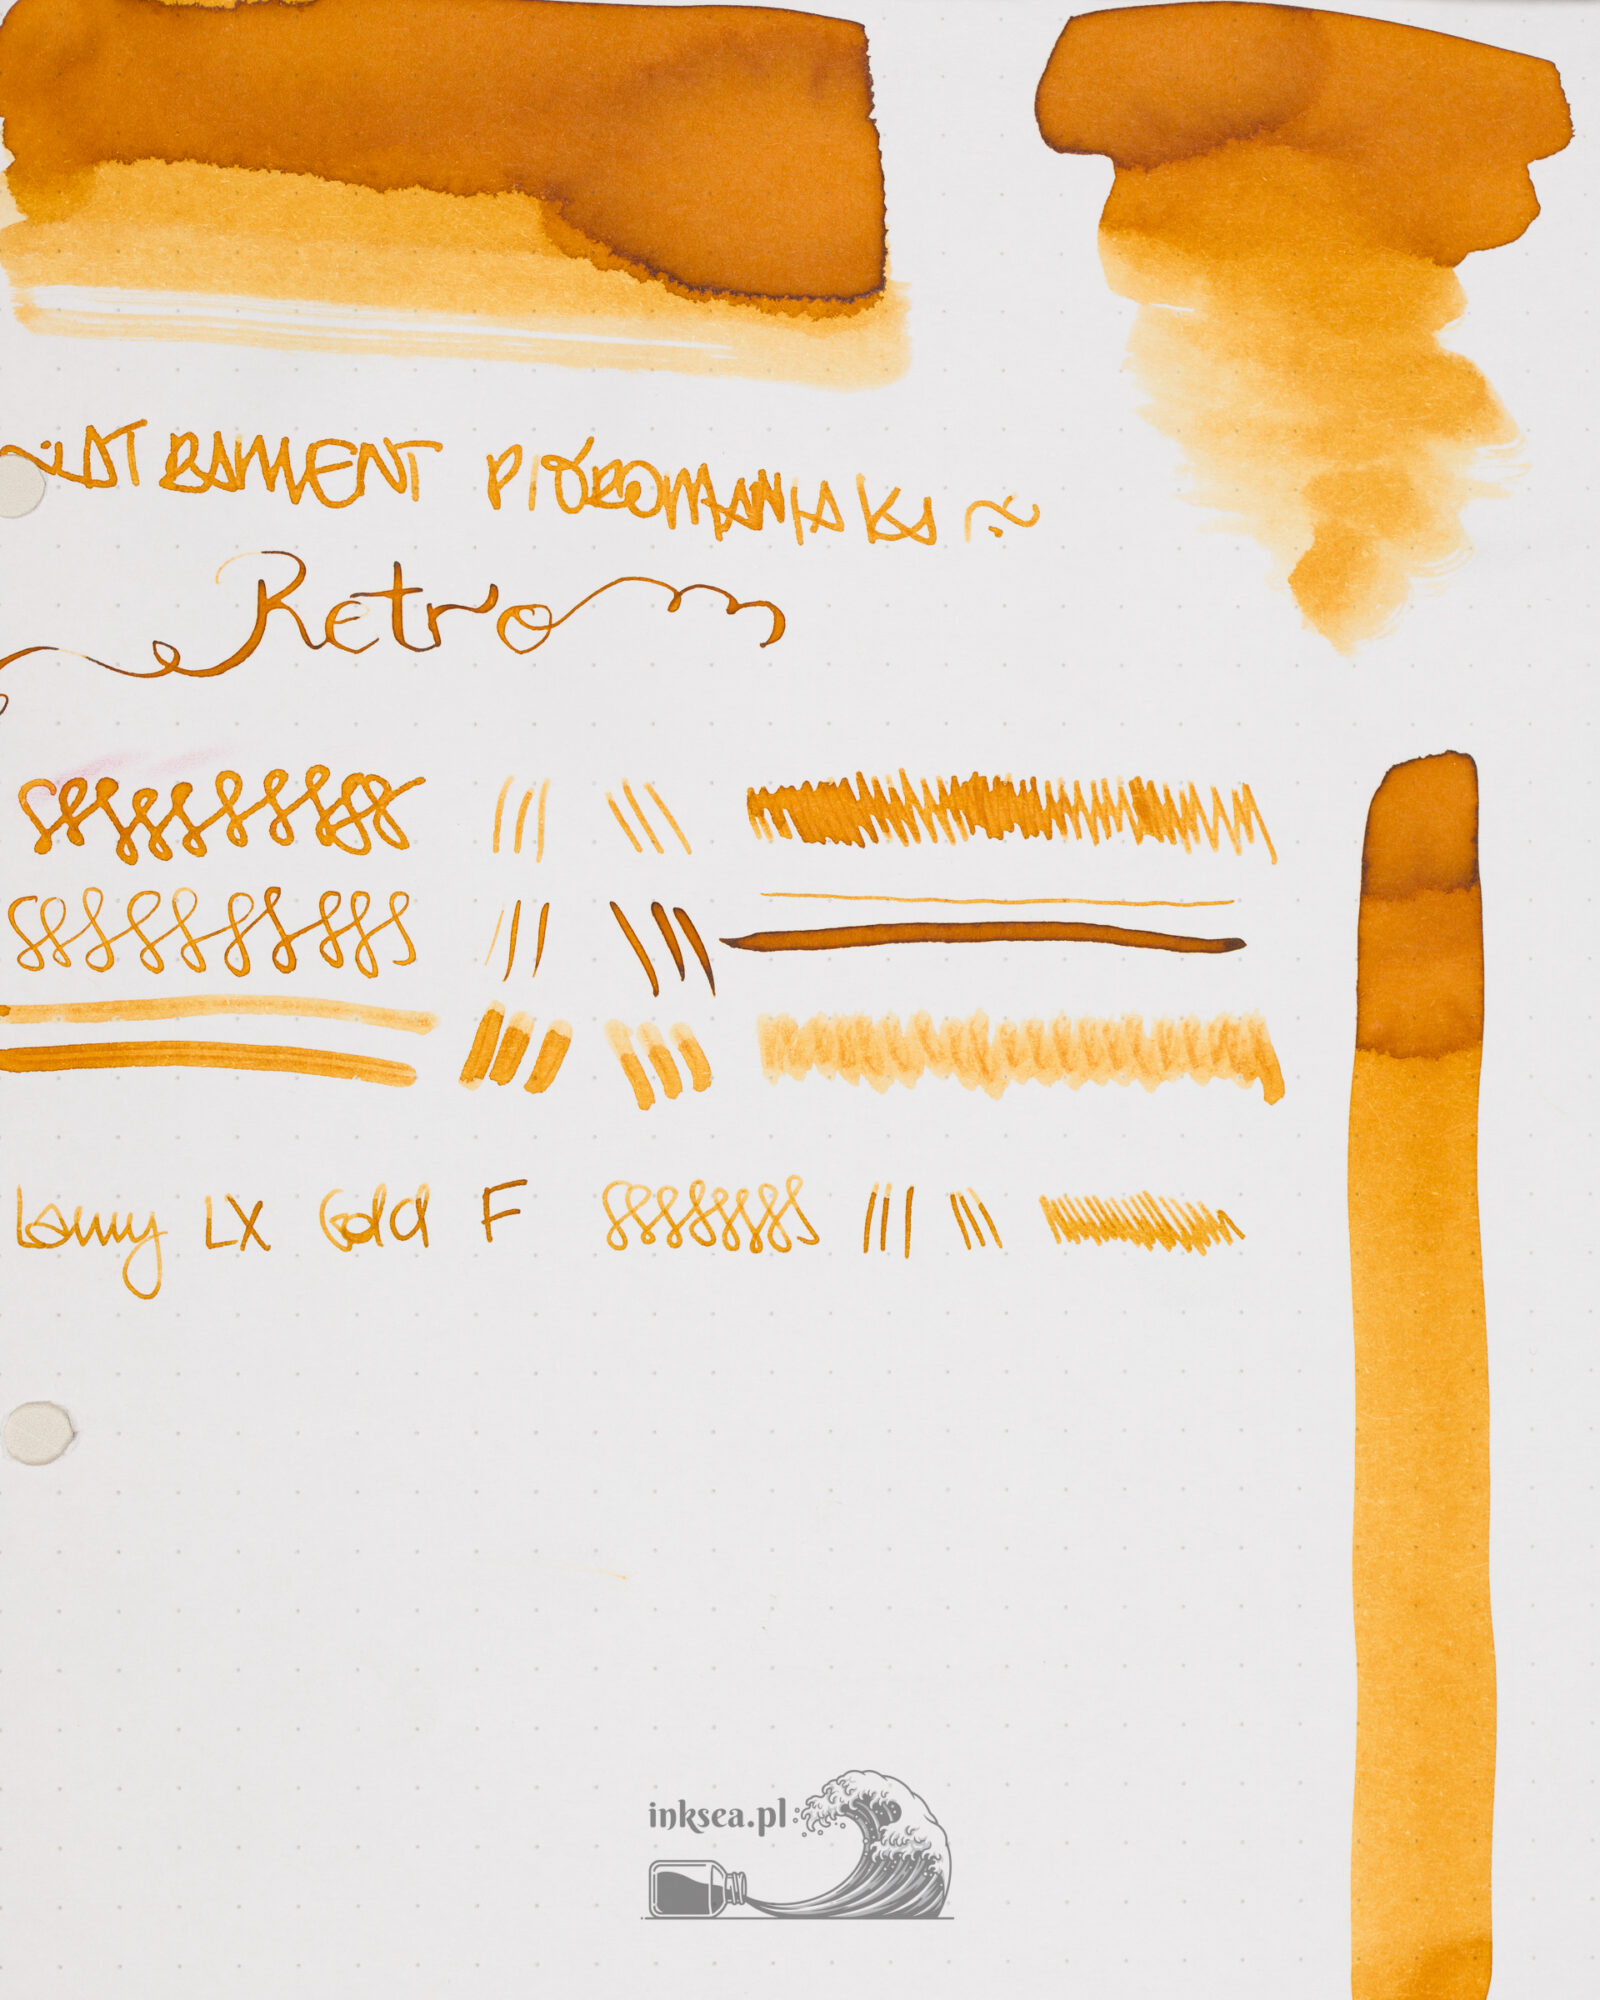 ATRAMENT PIÓROMANIAKA
Retro
Lamy LX Gold F
inksea.pl